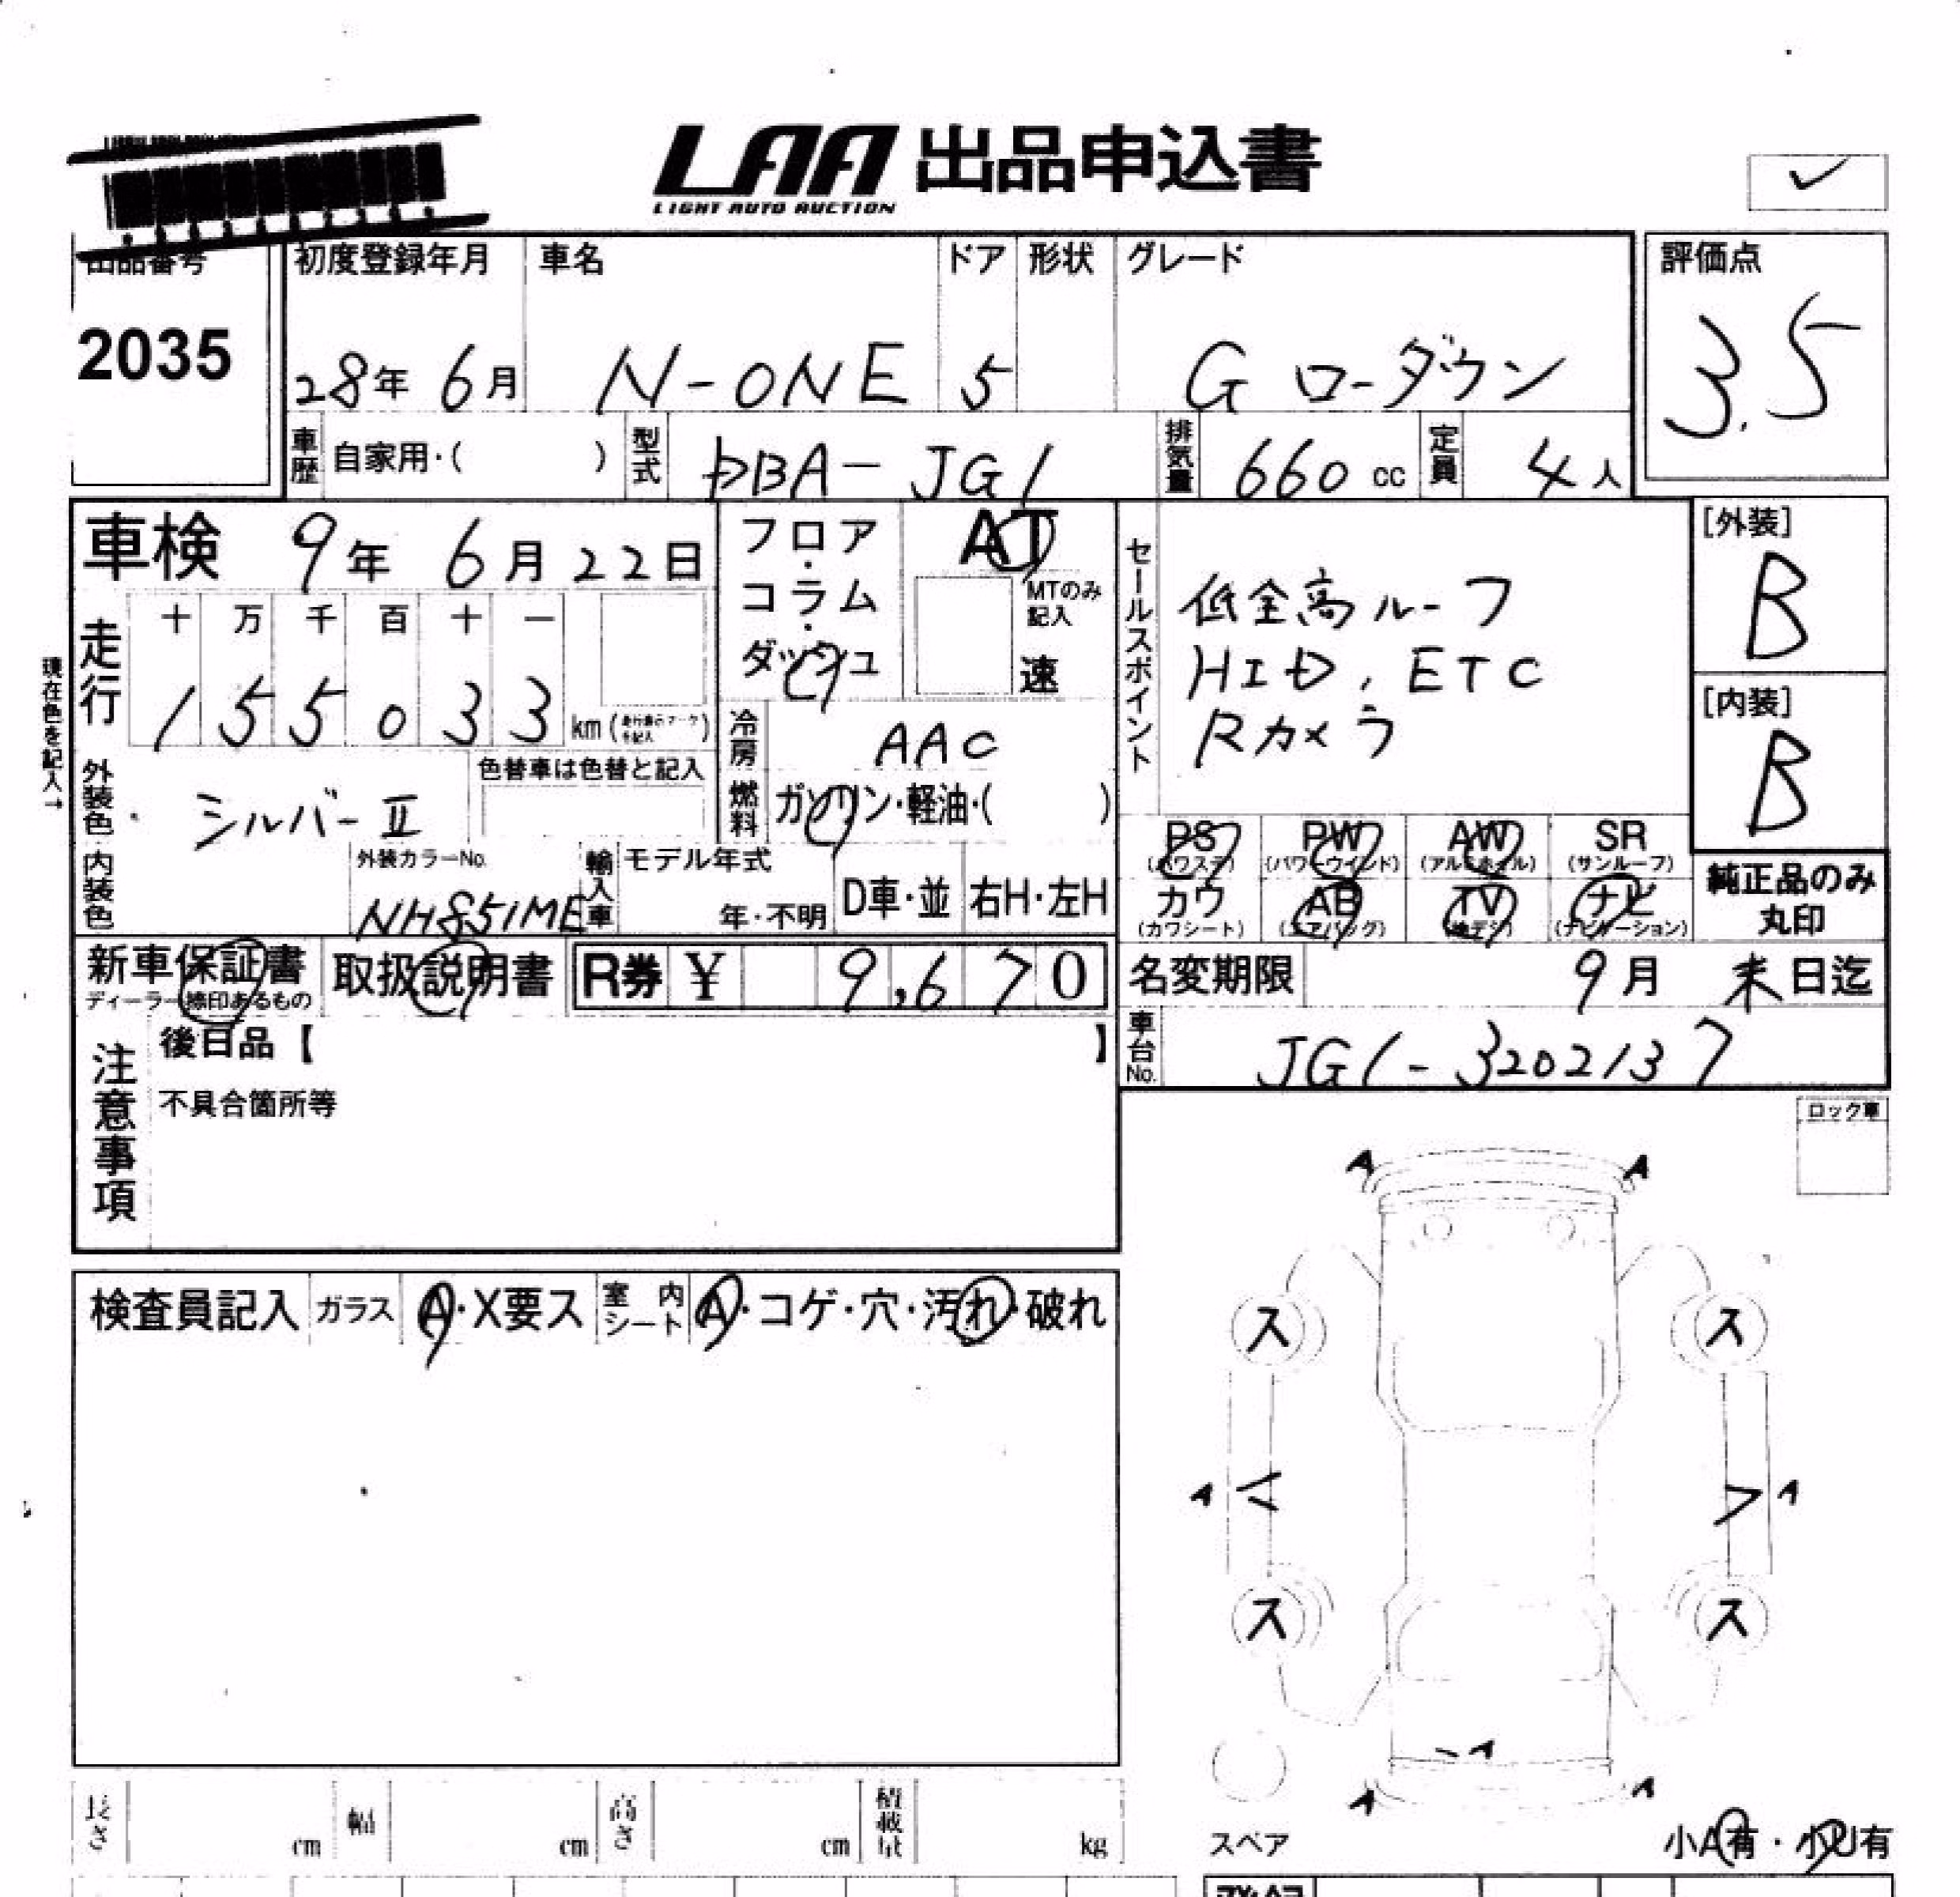 LAA 出品申込書
LIGHT AUTO AUCTION
✓
出品番号 初度登録年月 車名 ドア 形状 グレード 評価点
2035 28年 6月 N-ONE 5 G ローダウン 3.5
車歴 自家用・( ) 型式 DBA-JG1 排気量 660 cc 定員 4人
車検 9年 6月 22日
現在色を記入→
走行 十 万 千 百 十 一
1 5 5 0 3 3 km
フロア・コラム・ダッシュ
AT
MTのみ記入
速
セールスポイント
低全高ルーフ
HID, ETC
Rカメラ
[外装]
B
[内装]
B
冷房 AAC
燃料 ガソリン・軽油・( )
外装色 シルバーII
色替車は色替と記入
内装色
外装カラーNo.
NH851ME
輸入車 モデル年式
年・不明 D車・並 右H・左H
PS AW PW SR
(パワステ) (パワーウインド) (アルミホイル) (サンルーフ)
カワ AB TV ナビ
(カワシート) (エアバック) (地デジ) (ナビゲーション)
純正品のみ
丸印
新車保証書 取扱説明書 R券 ¥ 9,670
ディーラー捺印あるもの
名変期限 9月 末日迄
車台No. JG1-3202137
注意事項
後日品【 】
不具合箇所等
ロック車
検査員記入 ガラス A・X要ス 室内シート A・コゲ・穴・汚れ・破れ
A A
ス ス
A A
ス ス
A
A A
スペア 小A有・小U有
長さ cm 幅 cm 高さ cm 積載量 kg